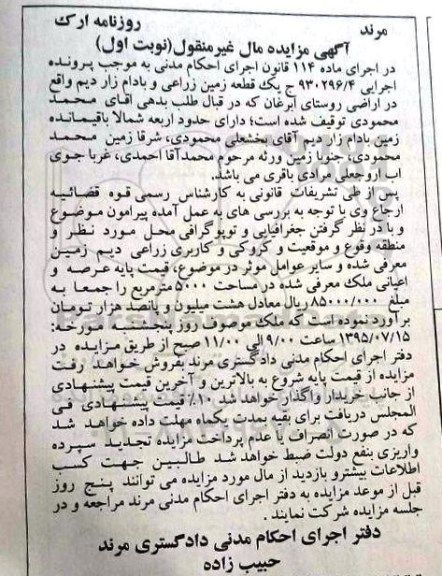 مرند
روزنامه ارک
آگهی مزایده مال غیرمنقول(نوبت اول)
در اجرای ماده ۱۱۴ قانون اجرای احکام مدنی به موجب پرونده
اجرایی ۹۳۰۲۹۶/۴ ج یک قطعه زمین زراعی و بادام زار دیم واقع
در اراضی روستای ابرغان که در قبال طلب بدهی آقای محمد
محمودی توقیف شده است؛ دارای حدود اربعه شمالا باقیمانده
زمین بادام زار دیم آقای بخشعلی محمودی، شرقا زمین محمد
محمودی، جنوبا زمین ورثه مرحوم محمدآقا احمدی، غربا جوی
آب اروجعلی مرادی باقری می باشد.
پس از طی تشریفات قانونی به کارشناس رسمی قوه قضائیه
ارجاع وی با توجه به بررسی های به عمل آمده پیرامون موضوع
و با در نظر گرفتن جغرافیایی و توپوگرافی محل مورد نظر و
منطقه وقوع و موقعیت و کروکی و کاربری زراعی دیم زمین
معرفی شده و سایر عوامل موثر در موضوع، قیمت پایه عرصه و
اعیانی ملک معرفی شده در مساحت ۵۰۰۰ مترمربع را جمعا به
مبلغ ۸۵۰۰۰/۰۰۰ ریال معادل هشت میلیون و پانصد هزار تومان
برآورد نموده است که ملک موصوف روز پنجشنبه مورخه:
۱۳۹۵/۰۷/۱۵ ساعت ۹/۰۰ الی ۱۱/۰۰ صبح از طریق مزایده در
دفتر اجرای احکام مدنی دادگستری مرند بفروش خواهد رفت
مزایده از قیمت پایه شروع به بالاترین و آخرین قیمت پیشنهادی
از جانب خریدار واگذار خواهد شد. ۱۰٪ قیمت پیشنهادی فی
المجلس دریافت برای بقیه بمدت یکماه مهلت داده خواهد شد
که در صورت انصراف یا عدم پرداخت مزایده تجدید سپرده
واریزی بنفع دولت ضبط خواهد شد طالبین جهت کسب
اطلاعات بیشترو بازدید از مال مورد مزایده می توانند پنج روز
قبل از موعد مزایده به دفتر اجرای احکام مدنی مرند مراجعه و در
جلسه مزایده شرکت نمایند.
دفتر اجرای احکام مدنی دادگستری مرند
حبیب زاده